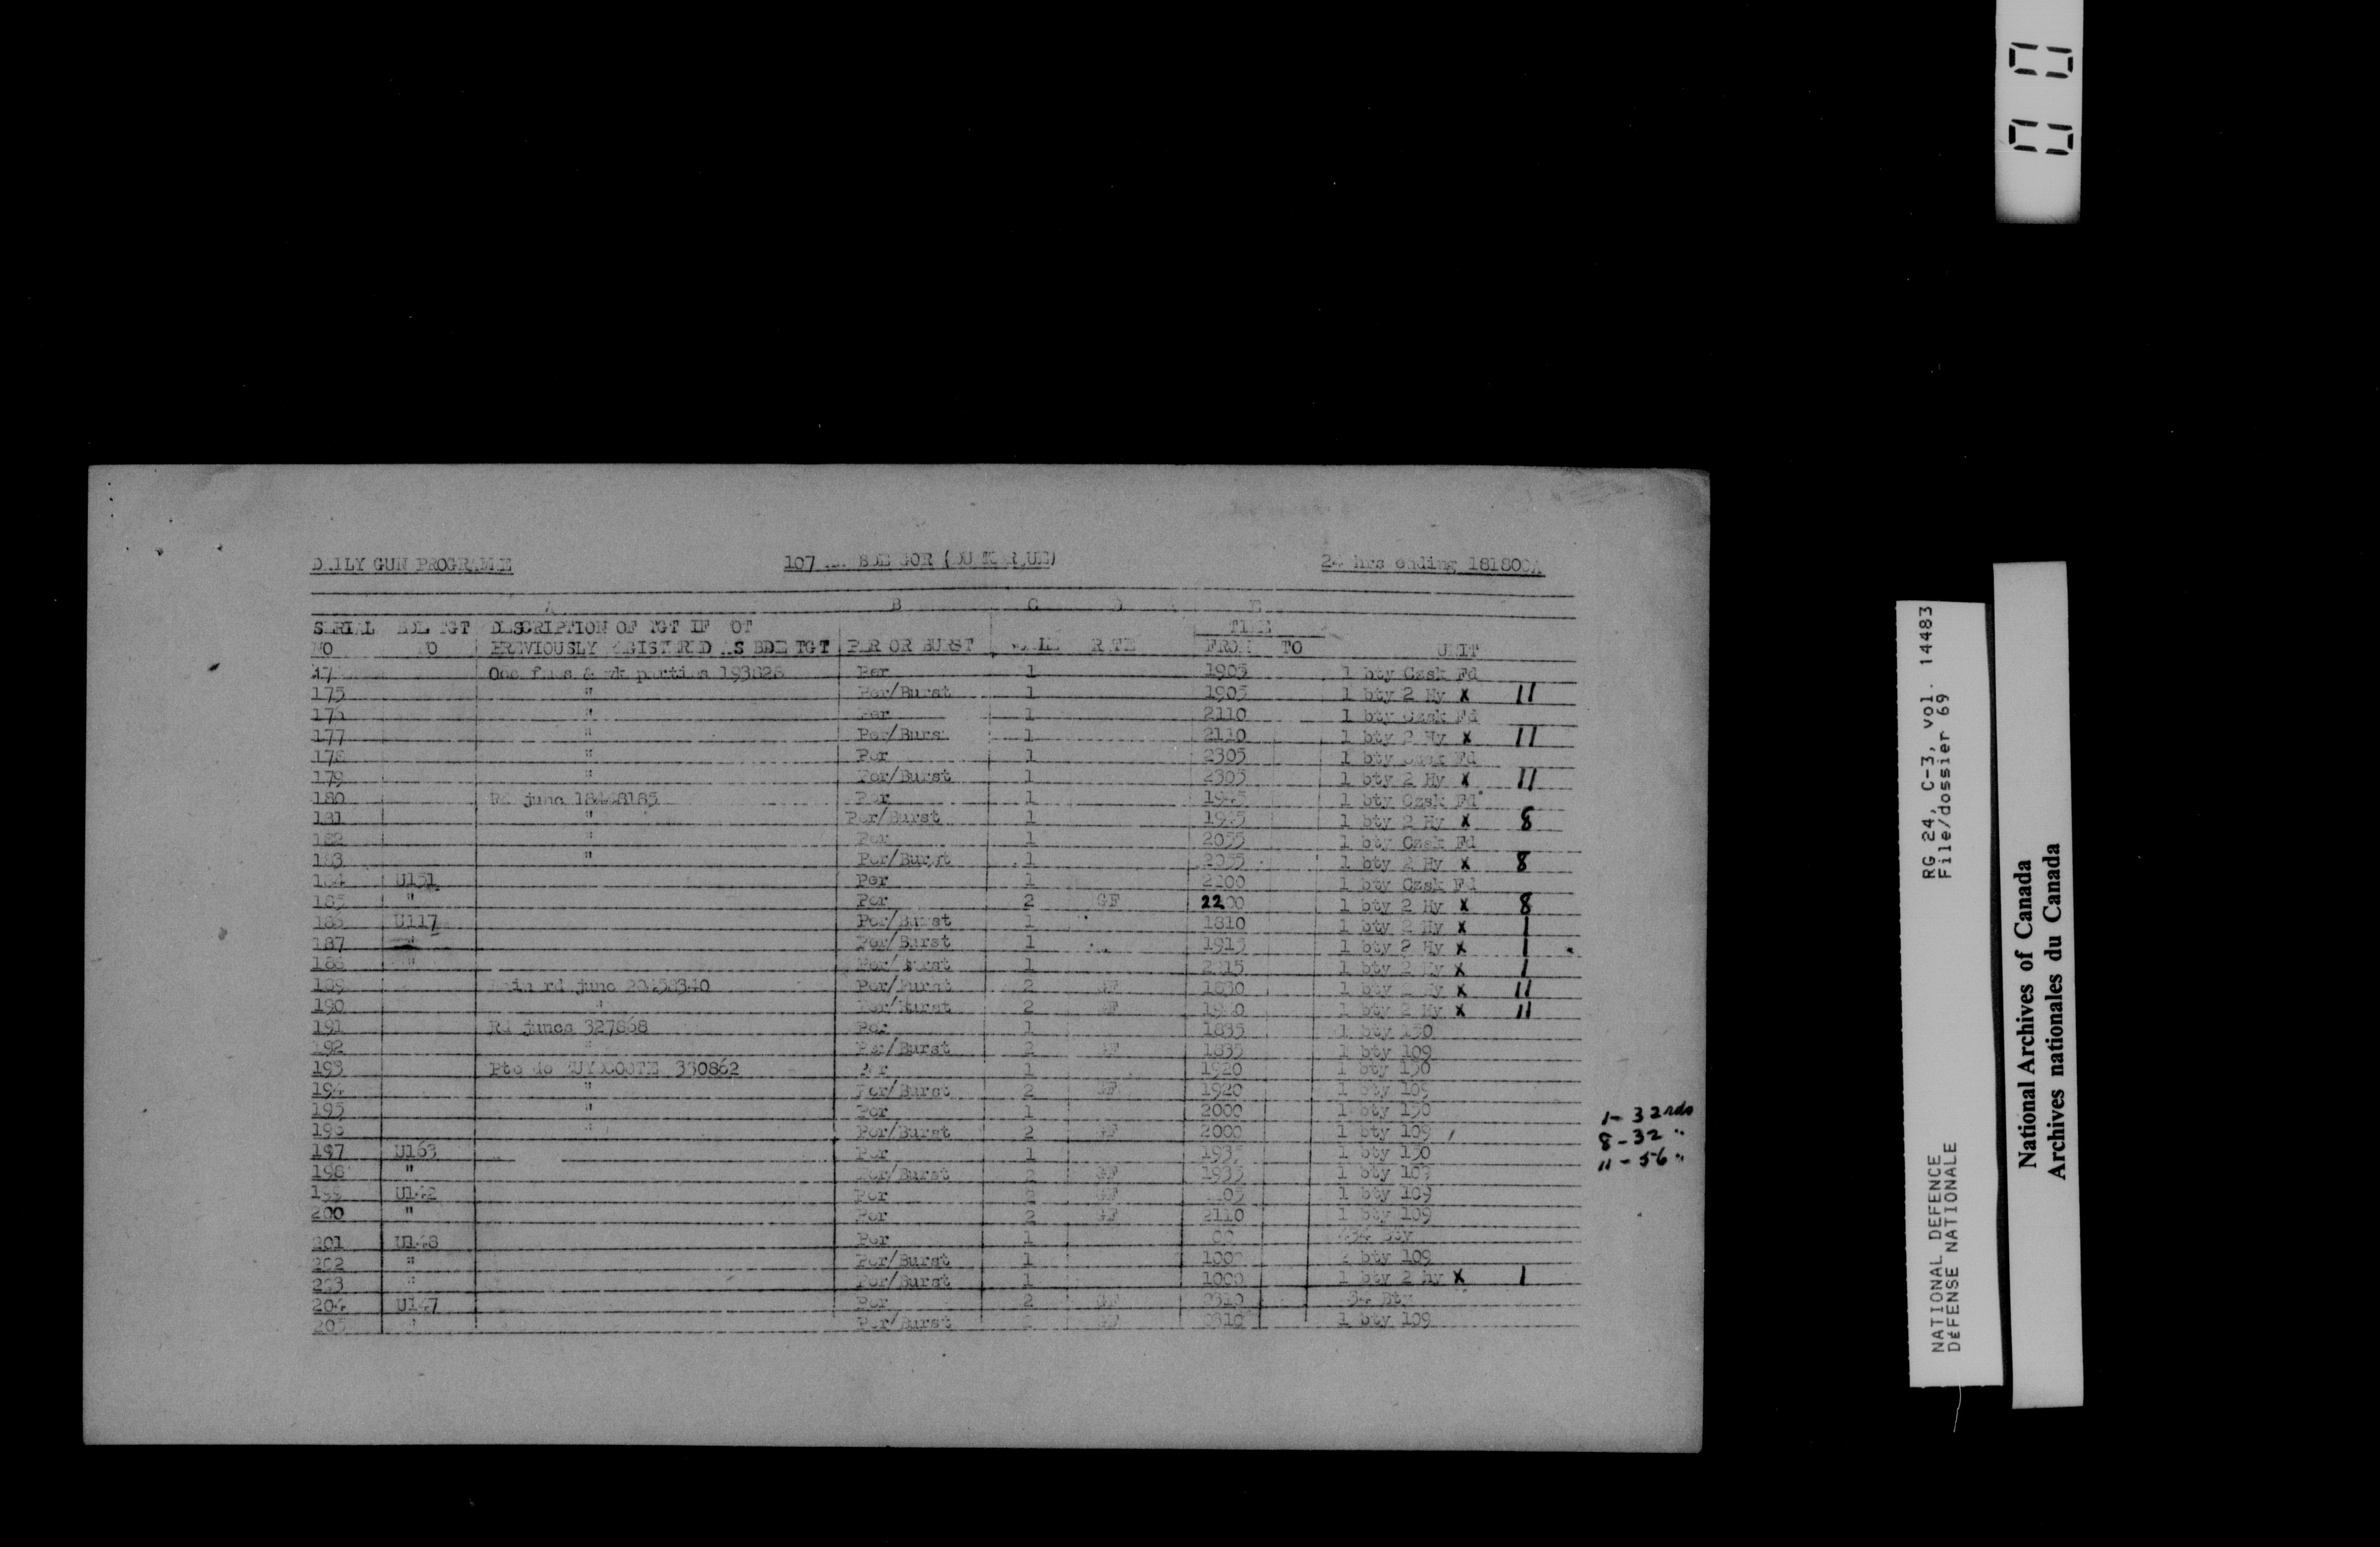 DAILY GUN PROGRAMME 107 BDE GOR (DUNKERQUE) 24 hrs ending 181800A
A B C D E
SERIAL BDE TGT DESCRIPTION OF TGT IF NOT TIME
NO NO PREVIOUSLY REGISTERED AS BDE TGT PER OR BURST SCALE RATE FROM TO UNIT
Occ & wk parties 193828 Per 1 1905 1 bty Czsk Fd
175 " Per/Burst 1 1905 1 bty 2 Hy x 11
176 " Per 1 2110 1 bty Czsk Fd
177 " Per/Burst 1 2110 1 bty 2 Hy x 11
178 " Per 1 2305 1 bty Czsk Fd
179 " Per/Burst 1 2305 1 bty 2 Hy x 11
180 Rd junc 18448185 Per 1 1 bty Czsk Fd
181 " Per/Burst 1 1 bty 2 Hy x 8
182 " Per 1 2055 1 bty Czsk Fd
183 " Per/Burst 1 2055 1 bty 2 Hy x 8
184 U151 Per 1 2200 1 bty Czsk Fd
185 " Per 2 GF 2200 1 bty 2 Hy x 8
186 U117 Per/Burst 1 1810 1 bty 2 Hy x 1
187 " Per/Burst 1 1915 1 bty 2 Hy x 1
188 " Per/Burst 1 1 bty 2 Hy x 1
189 Main rd junc 20458340 Per/Burst 2 GF 1830 1 bty 2 Hy x 11
190 " Per/Burst 2 GF 1 bty 2 Hy x 11
191 Rd juncs 327868 Per 1 1835 1 bty 150
192 " Per/Burst 2 GF 1835 1 bty 109
193 Pte de ZUYDCOOTE 330862 Per 1 1920 1 bty 150
194 " Per/Burst 2 GF 1920 1 bty 109
195 " Per 1 2000 1 bty 150
196 " Per/Burst 2 GF 2000 1 bty 109
197 U163 Per 1 1935 1 bty 150
198 " Per/Burst 2 GF 1935 1 bty 109
199 U142 Per 2 GF 1 bty 109
200 " Per 2 GF 2110 1 bty 109
201 U148 Per 1 Bty
202 " Per/Burst 1 1000 2 bty 109
203 " Per/Burst 1 1000 1 bty 2 Hy x 1
204 U147 Per 2 GF Bty
205 " Per/Burst 1 bty 109
1 - 32 rds
8 - 32 "
11 - 56 "
RG 24, C-3, vol. 14483
File/dossier 69
NATIONAL DEFENCE
DÉFENSE NATIONALE
National Archives of Canada
Archives nationales du Canada